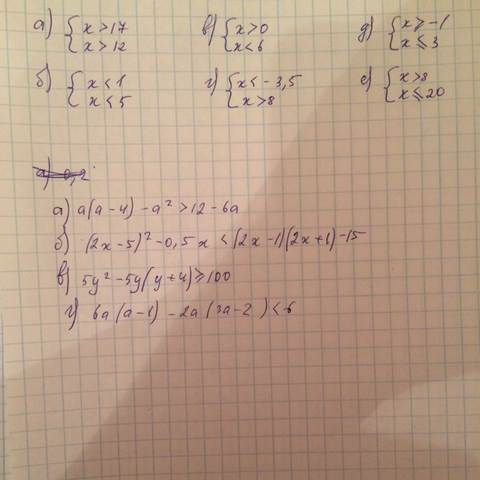 а) { x > 17 в) { x > 0 д) { x ⩾ -1
x > 12 x < 6 x ⩽ 3
б) { x < 1 г) { x < -3,5 е) { x > 8
x < 5 x > 8 x ⩽ 20
а) a(a-4) - a² > 12 - 6a
б) (2x-5)² - 0,5x < (2x-1)(2x+1) - 15
в) 5y² - 5y(y+4) ⩾ 100
г) 6a(a-1) - 2a(3a-2) < 6